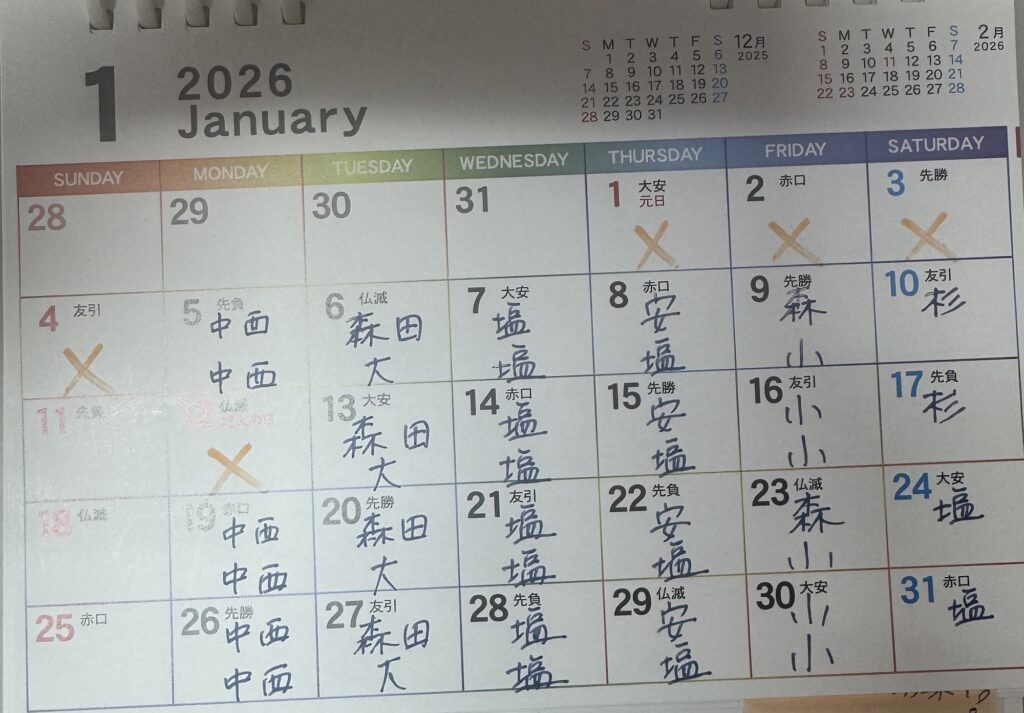 1
2026
January
12月
2025
S M T W T F S
1 2 3 4 5 6
7 8 9 10 11 12 13
14 15 16 17 18 19 20
21 22 23 24 25 26 27
28 29 30 31
2月
2026
S M T W T F S
1 2 3 4 5 6 7
8 9 10 11 12 13 14
15 16 17 18 19 20 21
22 23 24 25 26 27 28
SUNDAY MONDAY TUESDAY WEDNESDAY THURSDAY FRIDAY SATURDAY
28 29 30 31 1 大安 2 赤口 3 先勝
元日
4 友引 5 先負 6 仏滅 7 大安 8 赤口 9 先勝 10 友引
中西 森田 塩 安 森 杉
中西 大 塩 塩 小
11 先負 12 仏滅 13 大安 14 赤口 15 先勝 16 友引 17 先負
成人の日
森田 塩 安 小 杉
大 塩 塩 小
18 仏滅 19 赤口 20 先勝 21 友引 22 先負 23 仏滅 24 大安
中西 森田 塩 安 森 塩
中西 大 塩 塩 小
25 赤口 26 先勝 27 友引 28 先負 29 仏滅 30 大安 31 赤口
中西 森田 塩 安 小 塩
中西 大 塩 塩 小